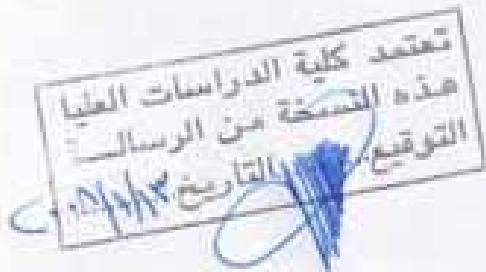 تعتمد كلية الدراسات العليا
هذه النسخة من الرسالــة
التوقيع.... التاريخ